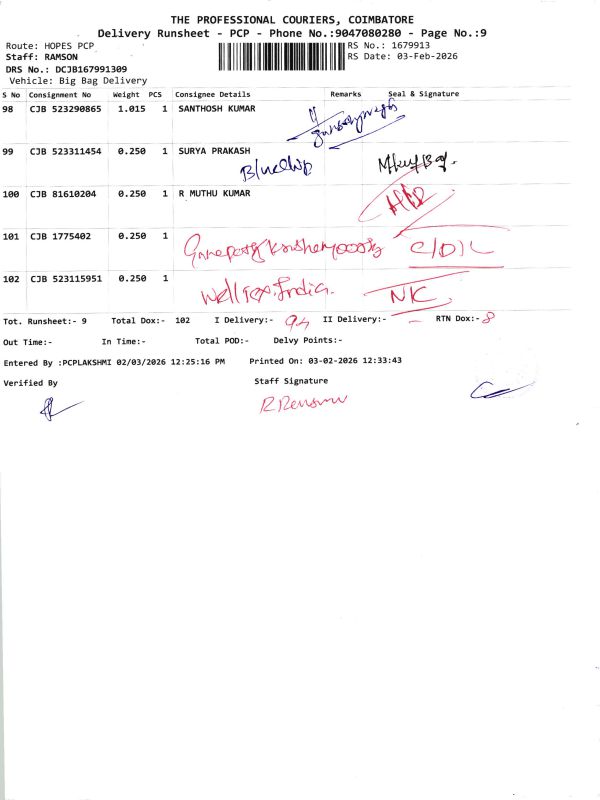 THE PROFESSIONAL COURIERS, COIMBATORE
Delivery Runsheet - PCP - Phone No.:9047080280 - Page No.:9
Route: HOPES PCP RS No.: 1679913
Staff: RAMSON RS Date: 03-Feb-2026
DRS No.: DCJB167991309
Vehicle: Big Bag Delivery
S No Consignment No Weight PCS Consignee Details Remarks Seal & Signature
98 CJB 523290865 1.015 1 SANTHOSH KUMAR
99 CJB 523311454 0.250 1 SURYA PRAKASH
100 CJB 81610204 0.250 1 R MUTHU KUMAR
101 CJB 1775402 0.250 1 C/D/L
102 CJB 523115951 0.250 1 Welltex India. NK
Tot. Runsheet:- 9 Total Dox:- 102 I Delivery:- 94 II Delivery:- - RTN Dox:- 8
Out Time:- In Time:- Total POD:- Delvy Points:-
Entered By :PCPLAKSHMI 02/03/2026 12:25:16 PM Printed On: 03-02-2026 12:33:43
Verified By Staff Signature